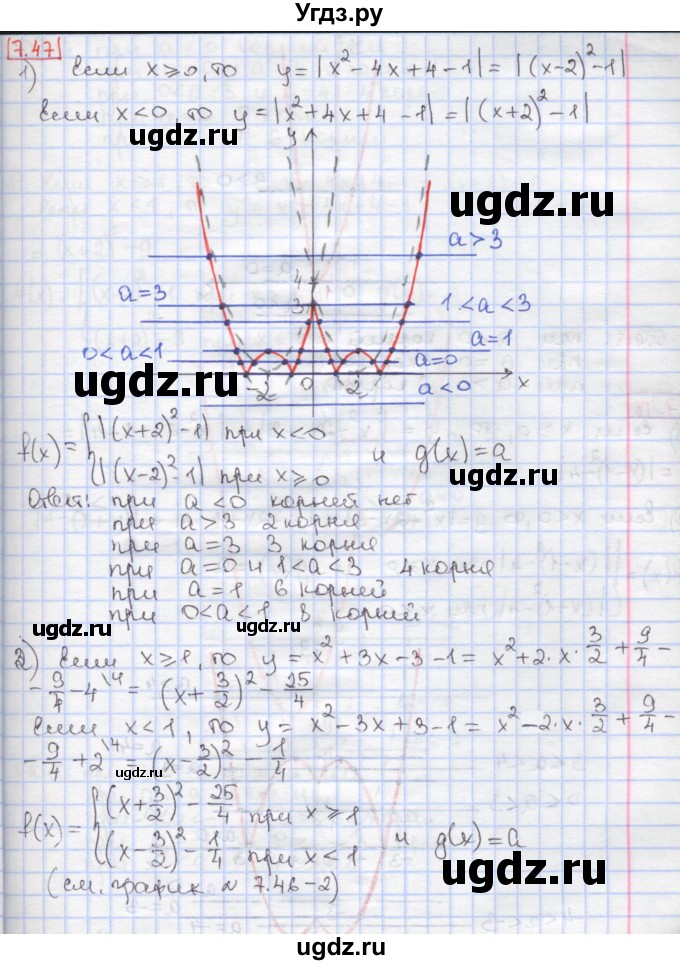 Угдз.ру
7.47
1) Если x⩾0, то y=|x²-4x+4-1|=|(x-2)²-1|
Если x<0, то y=|x²+4x+4-1|=|(x+2)²-1|
y
ugdz.ru
ugdz.ru
a>3
4
a=3
3
1<a<3
ugdz.ru
a=1
0<a<1
a=0
-2 0 2 x
a<0
f(x)={|(x+2)²-1| при x<0
{|(x-2)²-1| при x⩾0
и g(x)=a
ugdz.ru
Ответ: при a<0 корней нет
при a>3 2 корня
при a=3 3 корня
при a=0 и 1<a<3 4 корня
при a=1 6 корней
при 0<a<1 8 корней
ugdz.ru
ugdz.ru
2) Если x⩾1, то y=x²+3x-3-1=x²+2·x·3/2+9/4-
-9/4-4\4=(x+3/2)²-25/4
Если x<1, то y=x²-3x+3-1=x²-2·x·3/2+9/4-
-9/4+2\4=(x-3/2)²-1/4
ugdz.ru
ugdz.ru
f(x)={(x+3/2)²-25/4 при x⩾1
{(x-3/2)²-1/4 при x<1
и g(x)=a
(см. график № 7.46-2)
ugdz.ru
ugdz.ru
ugdz.ru